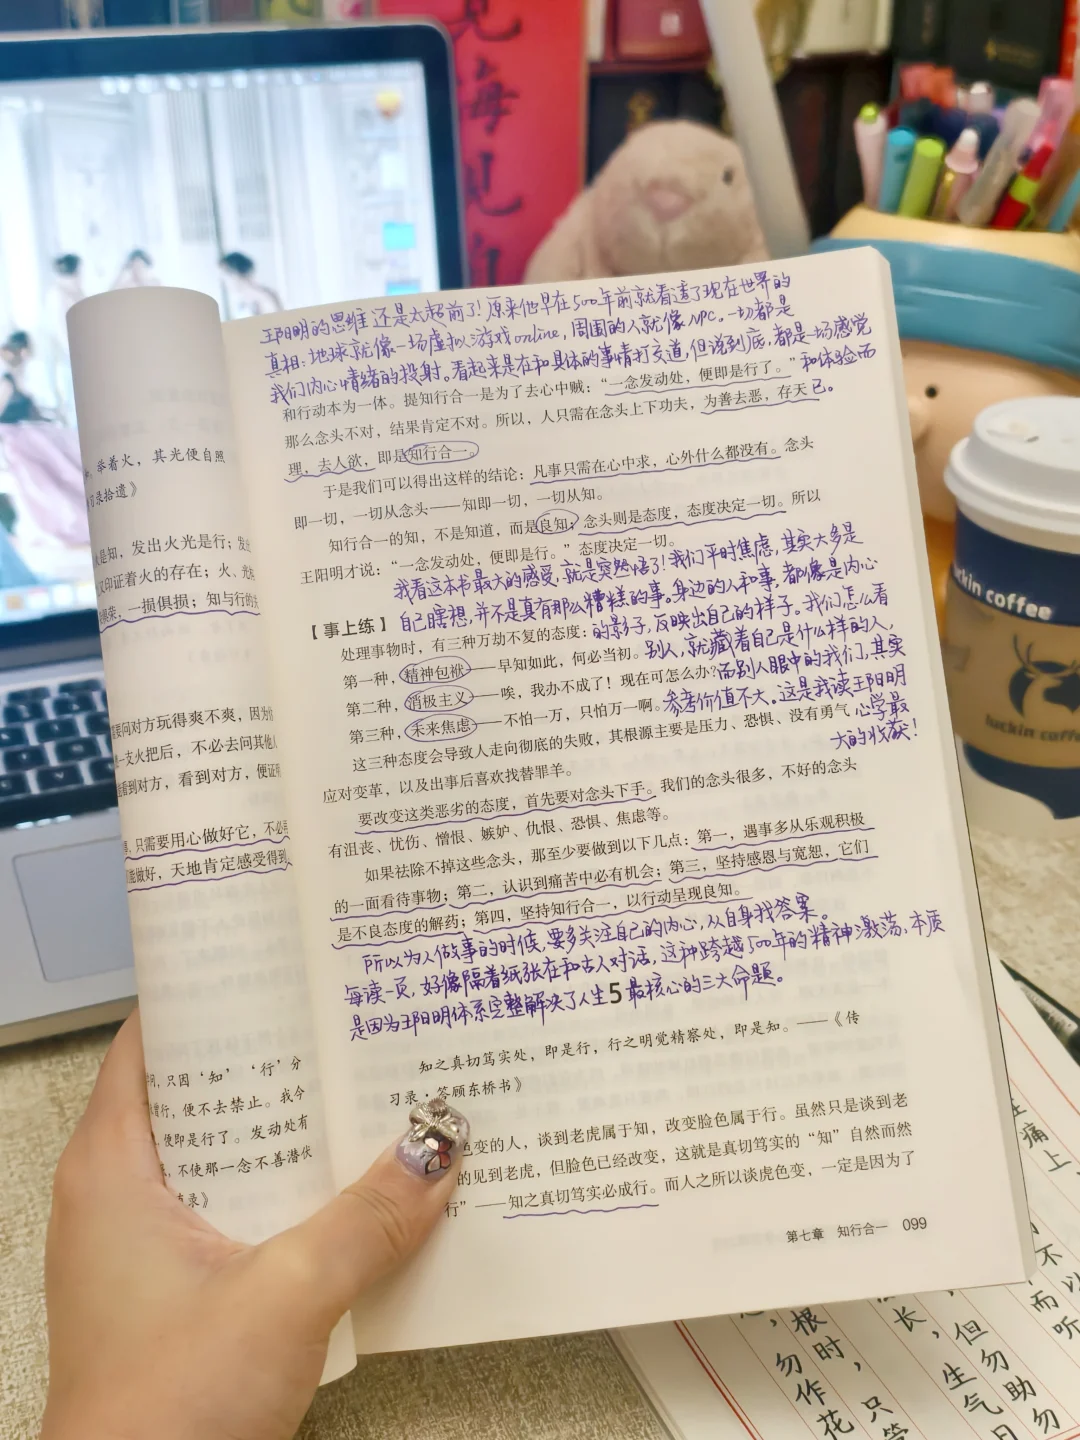 见
海
见
举着火，其光便自照
录拾遗》
是知，发出火光是行；发
又印证着火的存在；火、光
俱荣，一损俱损；知与行的
要问对方玩得爽不爽，因为
一支火把后，不必去问其他
看到对方，看到对方，便证
只需要用心做好它，不必
能做好，天地肯定感受得到
只因‘知’‘行’分
便不去禁止。我今
便即是行了。发动处有
不使那一念不善潜伏
录》
王阳明的思维还是太超前了！原来他早在500年前就看透了现在世界的
真相：地球就像一场虚拟游戏online，周围的人就像NPC。一切都是
我们内心情绪的投射。看起来是在和具体的事情打交道，但说到底，都是一场感觉
和体验而已。
和行动本为一体。提知行合一是为了去心中贼：“一念发动处，便即是行了。”
那么念头不对，结果肯定不对。所以，人只需在念头上下功夫，为善去恶，存天
理，去人欲，即是知行合一。
于是我们可以得出这样的结论：凡事只需在心中求，心外什么都没有。念头
即一切，一切从念头——知即一切，一切从知。
知行合一的知，不是知道，而是良知；念头则是态度，态度决定一切。所以
王阳明才说：“一念发动处，便即是行。”态度决定一切。
我看这本书最大的感受，就是突然悟了！我们平时焦虑，其实大多是
自己瞎想，并不是真有那么糟糕的事。身边的人和事，都像是内心
的影子，反映出自己的样子。我们怎么看
别人，就藏着自己是什么样的人，
而别人眼中的我们，其实
参考价值不大。这是我读王阳明
心学最
大的收获！
【事上练】
处理事物时，有三种万劫不复的态度：
第一种，精神包袱——早知如此，何必当初。
第二种，消极主义——唉，我办不成了！现在可怎么办？
第三种，未来焦虑——不怕一万，只怕万一啊。
这三种态度会导致人走向彻底的失败，其根源主要是压力、恐惧、没有勇气
应对变革，以及出事后喜欢找替罪羊。
要改变这类恶劣的态度，首先要对念头下手。我们的念头很多，不好的念头
有沮丧、忧伤、憎恨、嫉妒、仇恨、恐惧、焦虑等。
如果祛除不掉这些念头，那至少要做到以下几点：第一，遇事多从乐观积极
的一面看待事物；第二，认识到痛苦中必有机会；第三，坚持感恩与宽恕，它们
是不良态度的解药；第四，坚持知行合一，以行动呈现良知。
所以为人做事的时候，要多关注自己的内心，从自身找答案。
每读一页，好像隔着纸张在和古人对话，这种跨越500年的精神激荡，本质
是因为王阳明体系完整解决了人生5最核心的三大命题。
知之真切笃实处，即是行，行之明觉精察处，即是知。——《传
习录·答顾东桥书》
色变的人，谈到老虎属于知，改变脸色属于行。虽然只是谈到老
的见到老虎，但脸色已经改变，这就是真切笃实的“知”自然而然
行”——知之真切笃实必成行。而人之所以谈虎色变，一定是因为了
第七章 知行合一 099
luckin coffee
luckin coffee
痛上
不以
而听
但勿助勿
生气
长，
时，只
根
勿作花